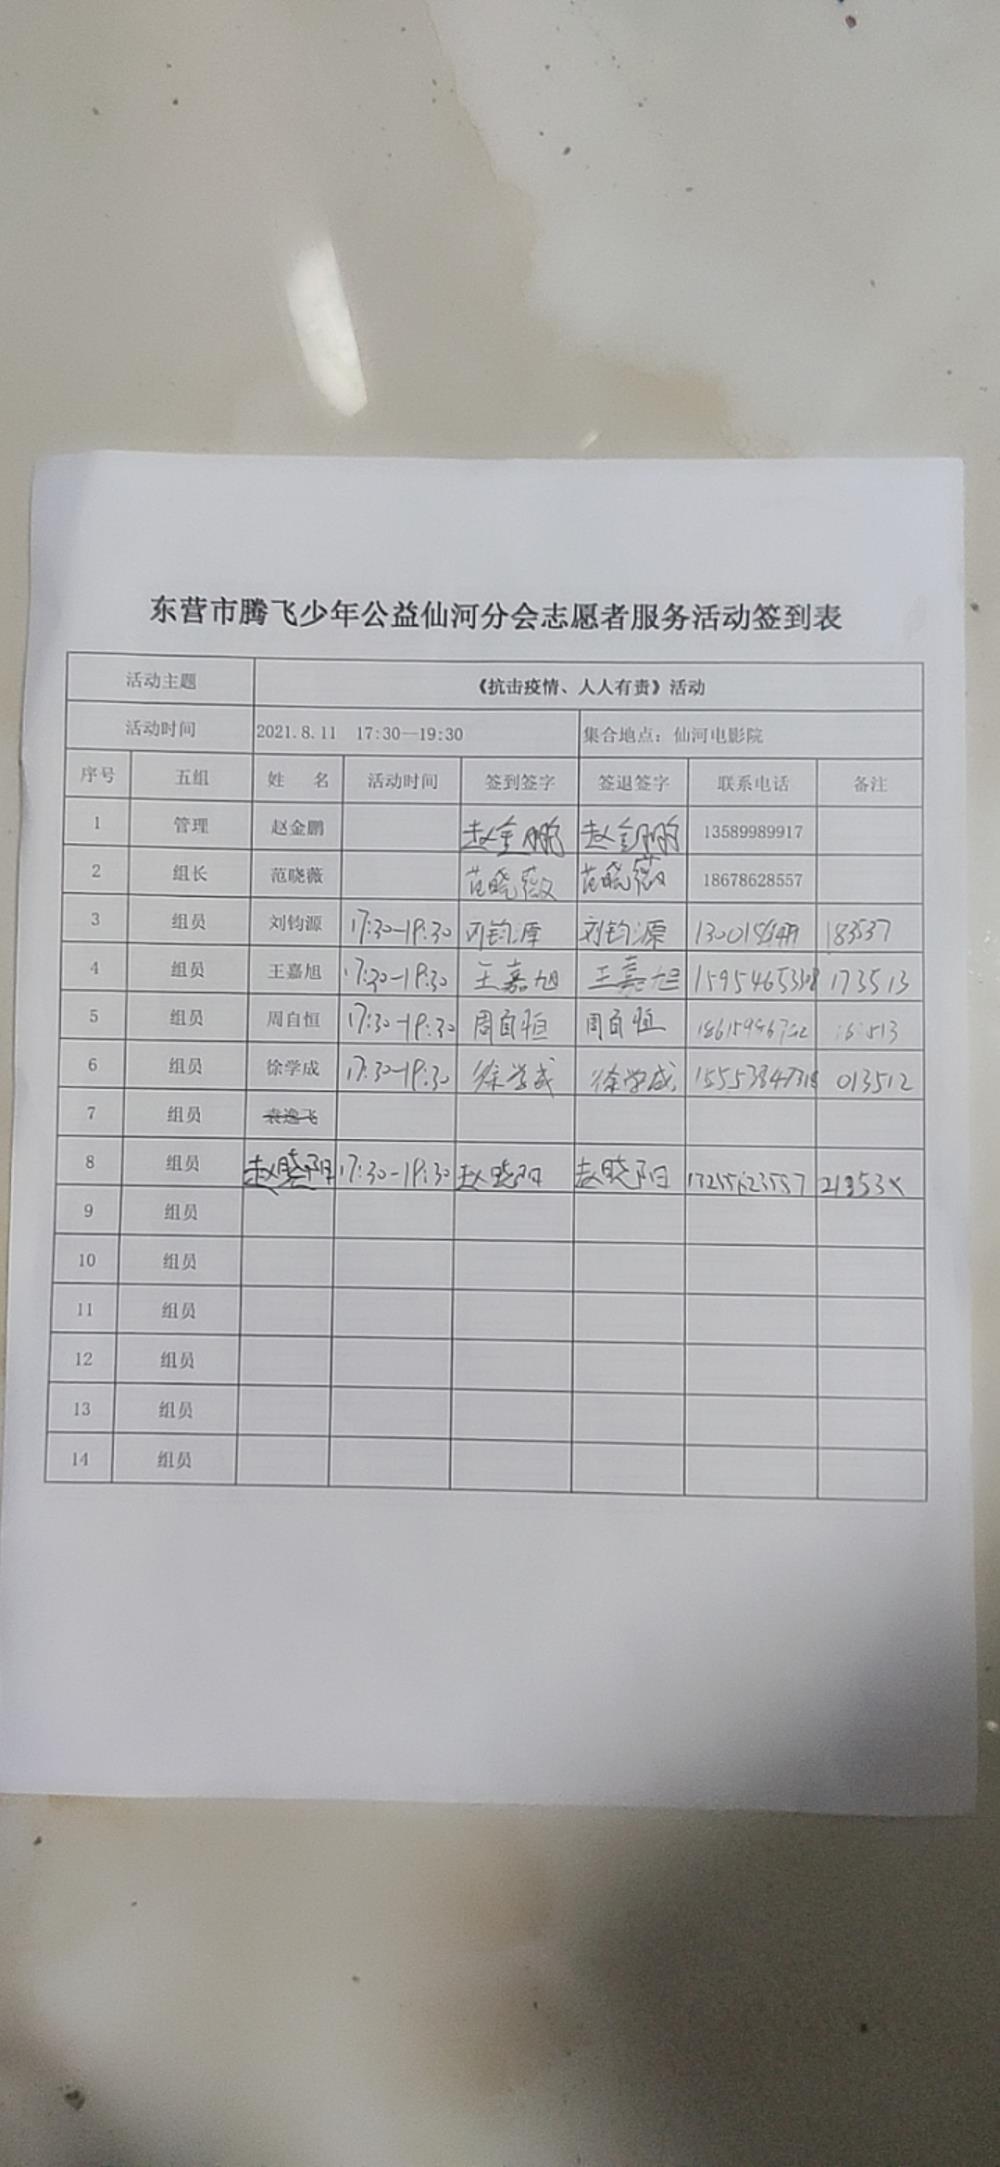 东营市腾飞少年公益仙河分会志愿者服务活动签到表
活动主题 《抗击疫情、人人有责》活动
活动时间 2021.8.11 17:30—19:30 集合地点：仙河电影院
序号 五组 姓 名 活动时间 签到签字 签退签字 联系电话 备注
1 管理 赵金鹏 赵金鹏 赵金鹏 13589989917
2 组长 范晓薇 范晓薇 范晓薇 18678628557
3 组员 刘钧源 17:30-19:30 刘钧源 刘钧源 183537
4 组员 王嘉旭 17:30-19:30 王嘉旭 王嘉旭 173513
5 组员 周自恒 17:30-19:30 周自恒 周自恒
6 组员 徐学成 17:30-19:30 徐学成 徐学成 013512
7 组员 袁逸飞
8 组员 赵晓阳 17:30-19:30 赵晓阳 赵晓阳
9 组员
10 组员
11 组员
12 组员
13 组员
14 组员